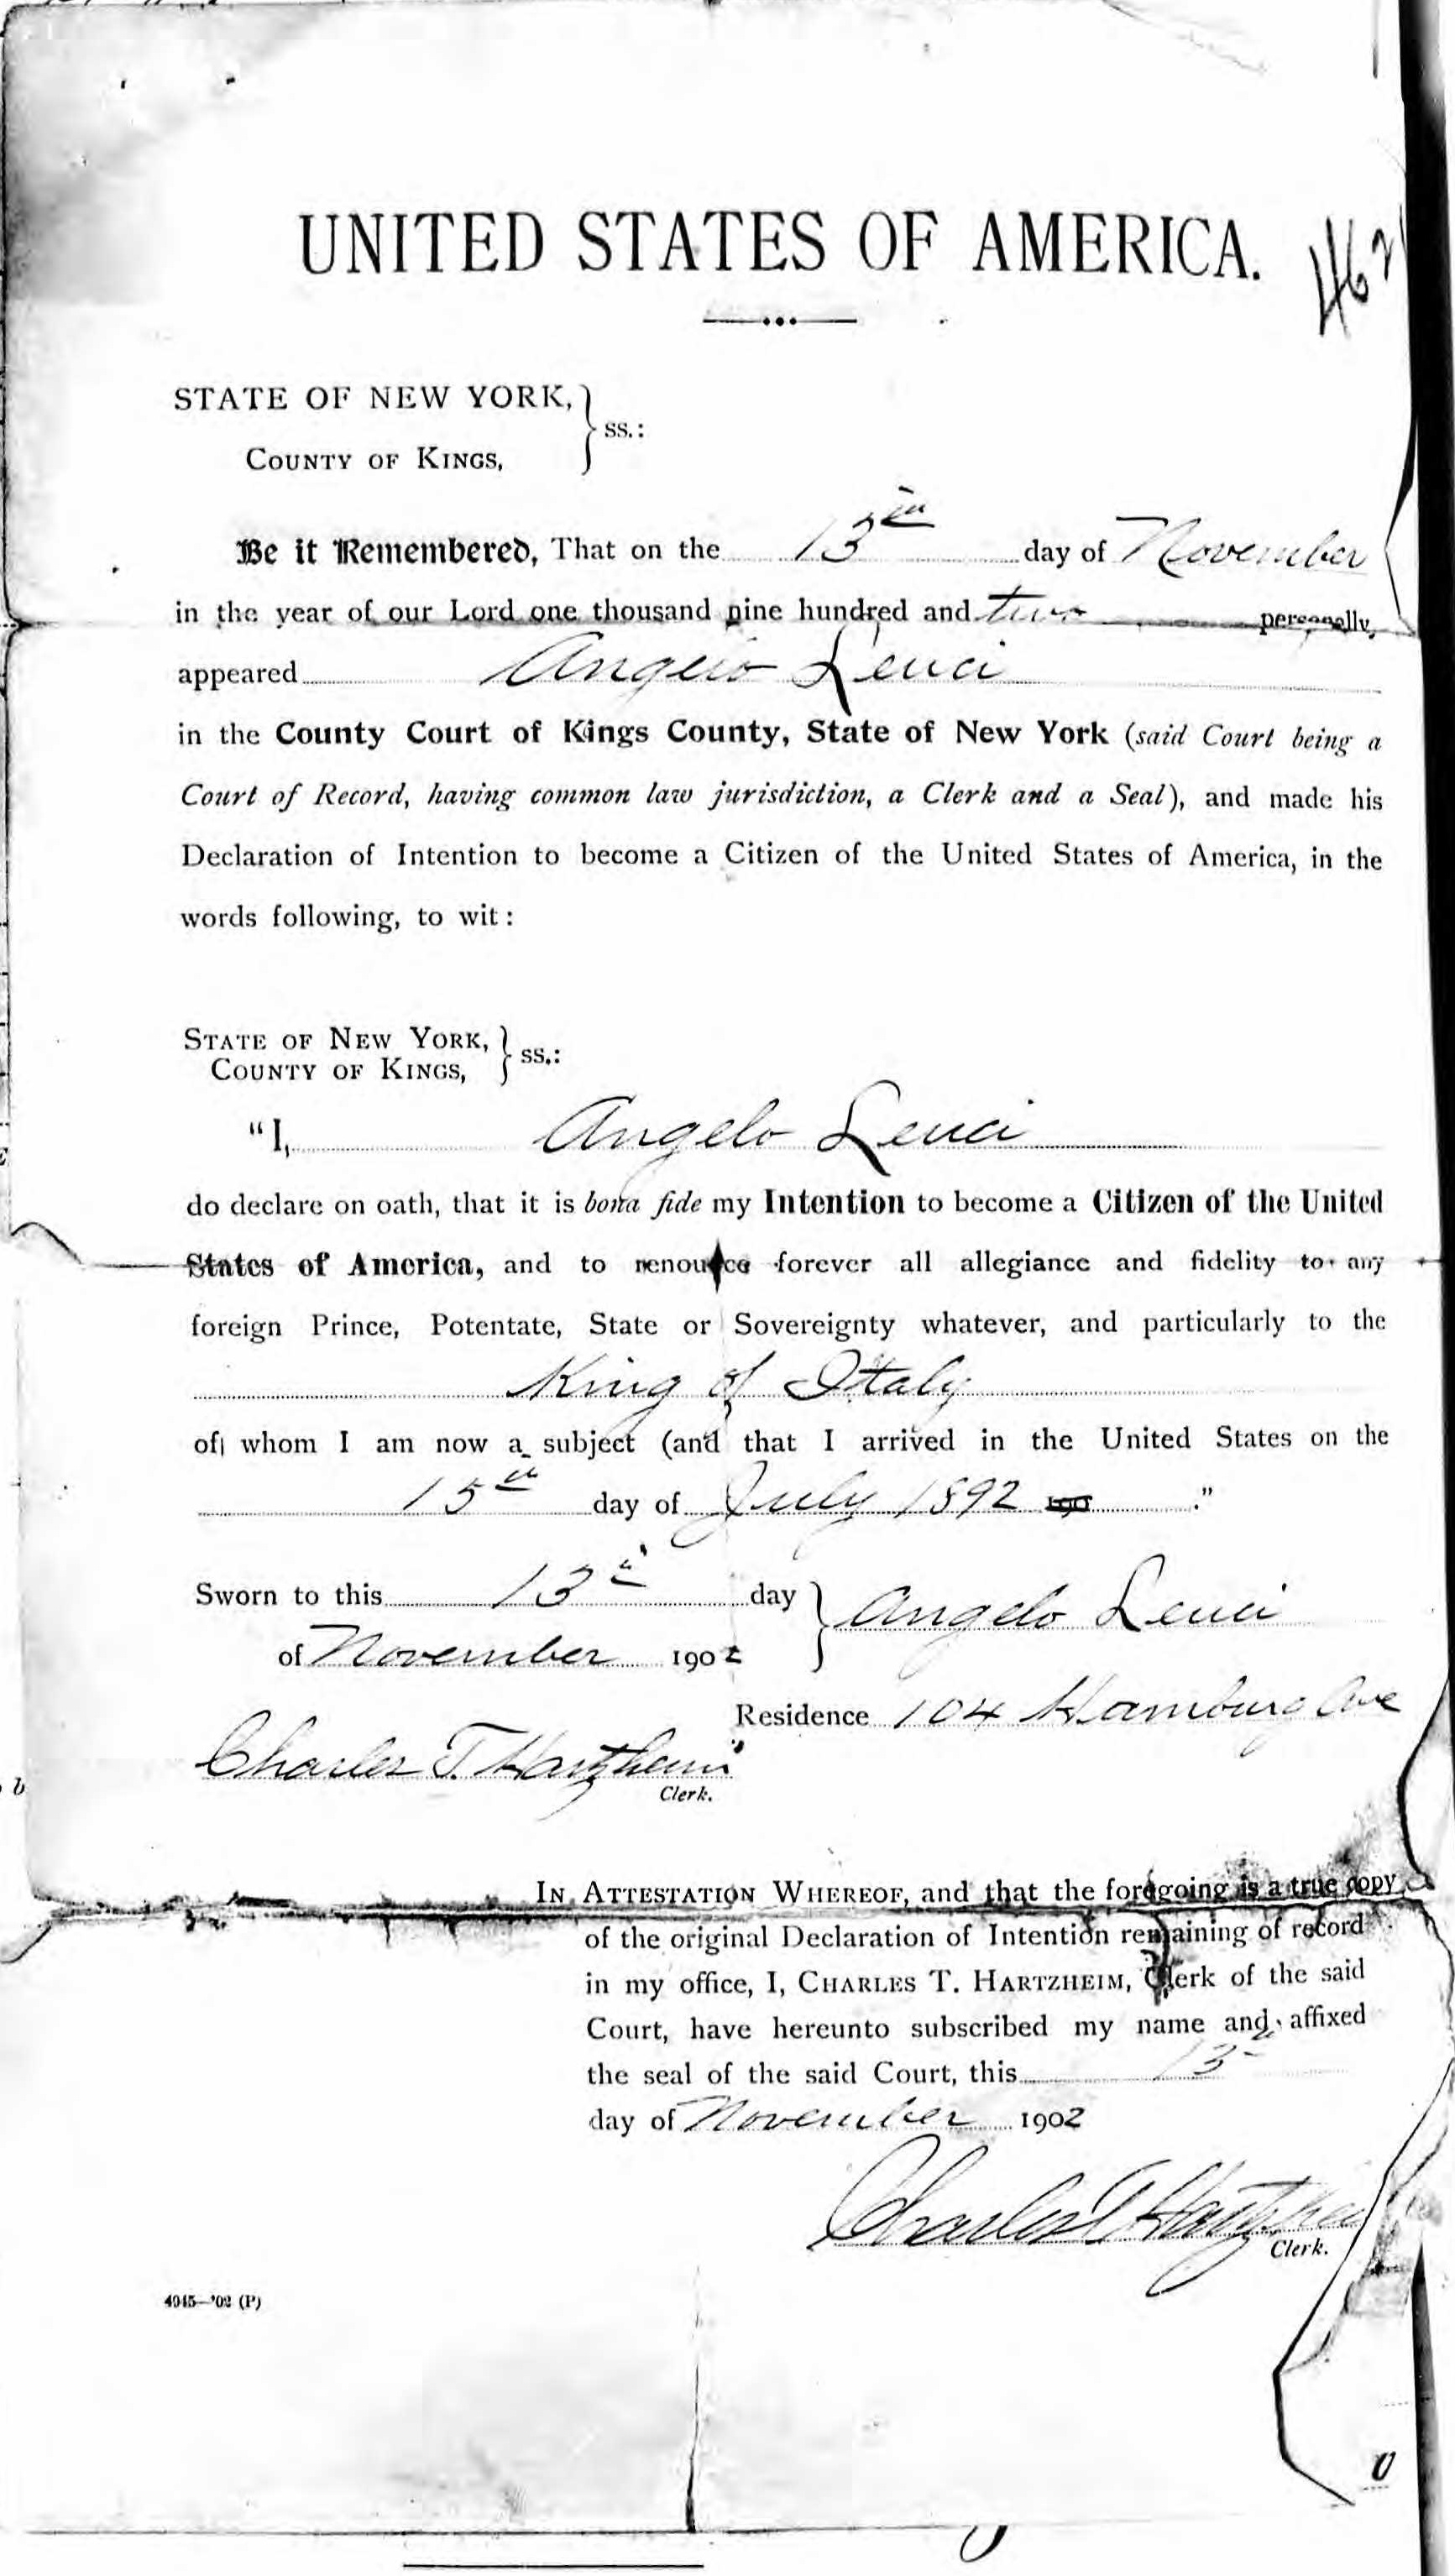 UNITED STATES OF AMERICA.
462
STATE OF NEW YORK,
COUNTY OF KINGS, } ss.:
Be it Remembered, That on the 13th day of November
in the year of our Lord one thousand nine hundred and two personally
appeared Angelo Leuci
in the County Court of Kings County, State of New York (said Court being a
Court of Record, having common law jurisdiction, a Clerk and a Seal), and made his
Declaration of Intention to become a Citizen of the United States of America, in the
words following, to wit:
STATE OF NEW YORK,
COUNTY OF KINGS, } ss.:
"I, Angelo Leuci
do declare on oath, that it is bona fide my Intention to become a Citizen of the United
States of America, and to renounce forever all allegiance and fidelity to any
foreign Prince, Potentate, State or Sovereignty whatever, and particularly to the
King of Italy
of whom I am now a subject (and that I arrived in the United States on the
15th day of July 1892 190 ."
Sworn to this 13th day } Angelo Leuci
of November 1902
Residence 104 Hamburg Ave
Charles T. Hartzheim
Clerk.
IN ATTESTATION WHEREOF, and that the foregoing is a true copy
of the original Declaration of Intention remaining of record
in my office, I, CHARLES T. HARTZHEIM, Clerk of the said
Court, have hereunto subscribed my name and affixed
the seal of the said Court, this 13
day of November 1902
Charles T Hartzheim
Clerk.
4045—'02 (P)